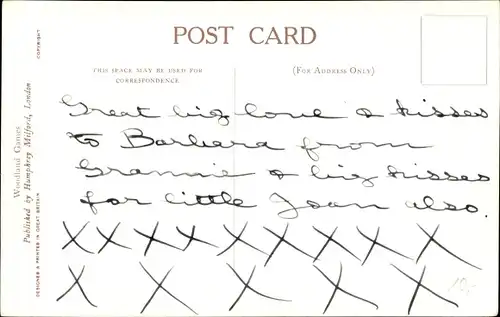 POST CARD
THIS SPACE MAY BE USED FOR
CORRESPONDENCE
(FOR ADDRESS ONLY)
Great big love & kisses
to Barbara from
Grannie & big kisses
for little Joan also.
X X X X X X X X X
X X X X X X
10,-
COPYRIGHT
Woodland Games
Published by Humphrey Milford, London
DESIGNED & PRINTED IN GREAT BRITAIN